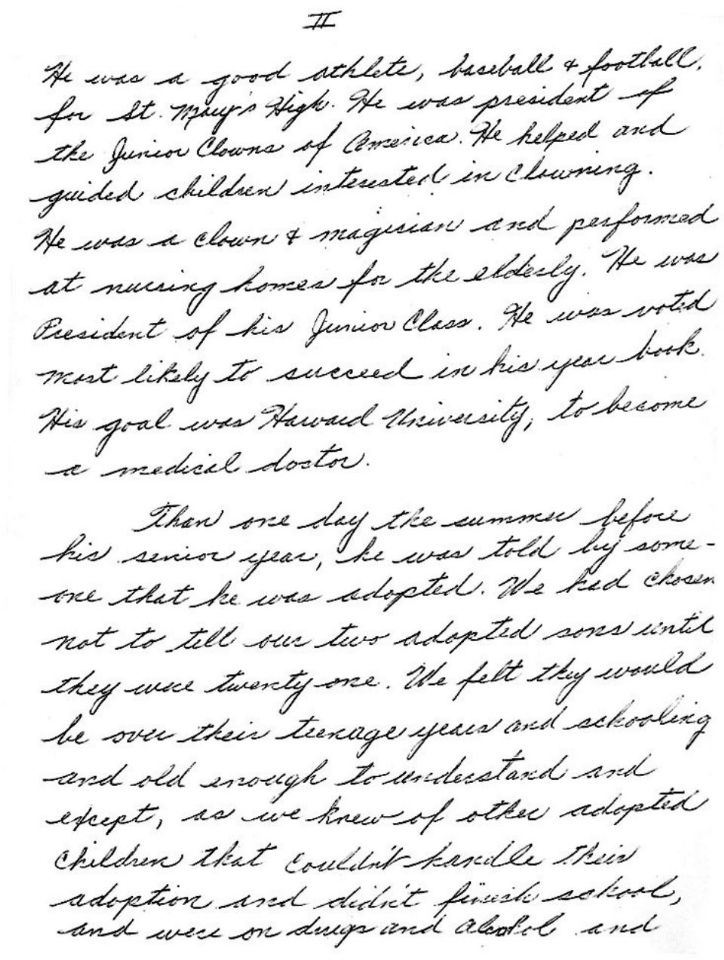 II
He was a good athlete, baseball & football,
for St. Mary's High. He was president of
the Junior Clowns of America. He helped and
guided children interested in clowning.
He was a clown & magician and performed
at nursing homes for the elderly. He was
President of his Junior Class. He was voted
most likely to succeed in his year book.
His goal was Harvard University, to become
a medical doctor.
Than one day the summer before
his senior year, he was told by some-
one that he was adopted. We had chosen
not to tell our two adopted sons until
they were twenty one. We felt they would
be over their teenage years and schooling
and old enough to understand and
except, as we knew of other adopted
children that couldn't handle their
adoption and didn't finish school,
and were on drugs and alcohol and